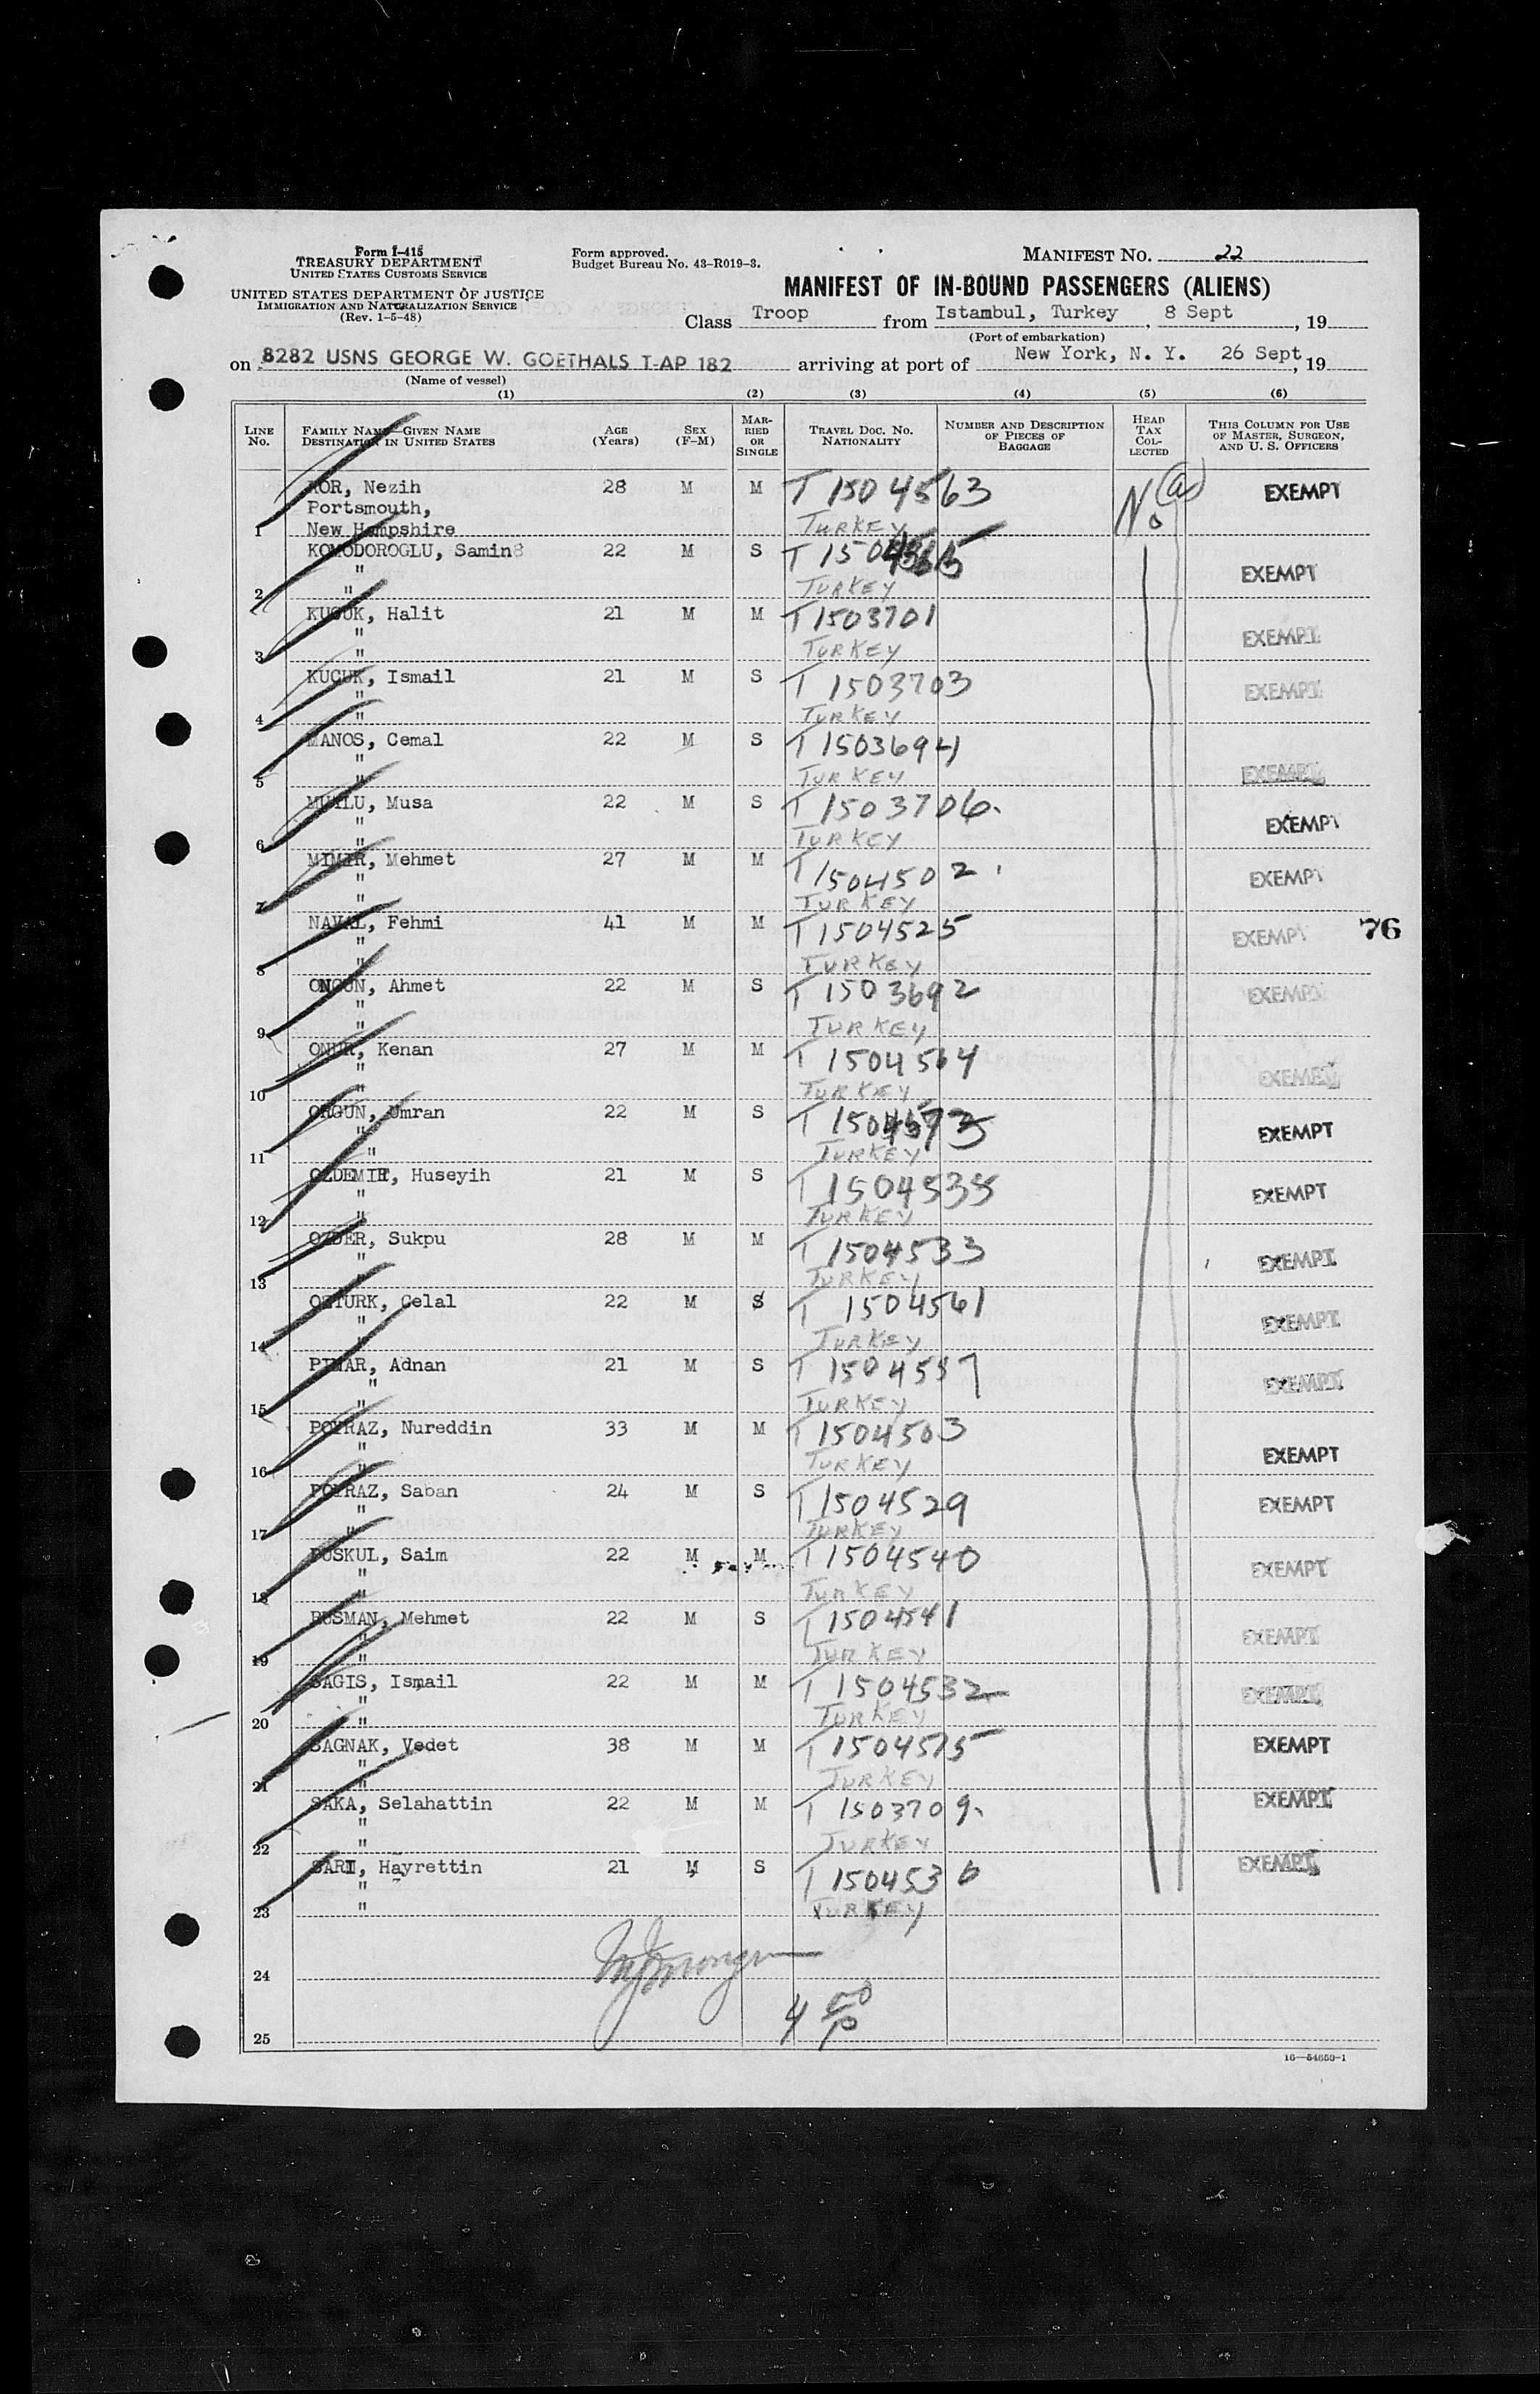 Form I-415
TREASURY DEPARTMENT
UNITED STATES CUSTOMS SERVICE
UNITED STATES DEPARTMENT OF JUSTICE
IMMIGRATION AND NATURALIZATION SERVICE
(Rev. 1-5-48)
Form approved.
Budget Bureau No. 43-R019-3.
MANIFEST NO. 22
MANIFEST OF IN-BOUND PASSENGERS (ALIENS)
Class Troop from Istambul, Turkey, 8 Sept, 19
(Port of embarkation)
on 8282 USNS GEORGE W. GOETHALS T-AP 182 arriving at port of New York, N. Y. 26 Sept, 19
(Name of vessel)
(1) (2) (3) (4) (5) (6)
LINE No. FAMILY NAME—GIVEN NAME DESTINATION IN UNITED STATES AGE (Years) SEX (F-M) MARRIED OR SINGLE TRAVEL DOC. NO. NATIONALITY NUMBER AND DESCRIPTION OF PIECES OF BAGGAGE HEAD TAX COLLECTED THIS COLUMN FOR USE OF MASTER, SURGEON, AND U. S. OFFICERS
KOR, Nezih 28 M M T 1504563 No EXEMPT
Portsmouth,
1 New Hampshire TURKEY
KOMODOROGLU, Samin 22 M S T EXEMPT
"
2 " TURKEY
KUCUK, Halit 21 M M T 1503701 EXEMPT
"
3 " TURKEY
KUCUK, Ismail 21 M S T 1503703 EXEMPT
"
4 " TURKEY
MANOS, Cemal 22 M S T 1503694 EXEMPT
"
5 " TURKEY
Musa 22 M S T 1503706 EXEMPT
"
6 " TURKEY
MIMIR, Mehmet 27 M M T 1504502 EXEMPT
"
7 " TURKEY
NAVAL, Fehmi 41 M M T 1504525 EXEMPT 76
"
8 " TURKEY
ONGUN, Ahmet 22 M S T 1503692 EXEMPT
"
9 " TURKEY
ONUR, Kenan 27 M M T 1504564 EXEMPT
"
10 " TURKEY
ORGUN, Umran 22 M S T 1504573 EXEMPT
"
11 " TURKEY
OZDEMIR, Huseyih 21 M S T 1504535 EXEMPT
"
12 " TURKEY
OZDER, Sukpu 28 M M T 1504533 EXEMPT
"
13 " TURKEY
OZTURK, Celal 22 M S T 1504561 EXEMPT
"
14 " TURKEY
PINAR, Adnan 21 M S T 1504537 EXEMPT
"
15 " TURKEY
POYRAZ, Nureddin 33 M M T 1504503 EXEMPT
"
16 " TURKEY
POYRAZ, Saban 24 M S T 1504529 EXEMPT
"
17 " TURKEY
PUSKUL, Saim 22 M M T 1504540 EXEMPT
"
18 " TURKEY
RUSMAN, Mehmet 22 M S T 1504541 EXEMPT
"
19 " TURKEY
SAGIS, Ismail 22 M M T 1504532 EXEMPT
"
20 " TURKEY
SAGNAK, Vedet 38 M M T 1504515 EXEMPT
"
21 " TURKEY
SAKA, Selahattin 22 M M T 1503709 EXEMPT
"
22 " TURKEY
SARI, Hayrettin 21 M S T 1504536 EXEMPT
"
23 " TURKEY
24
25
16—54650-1